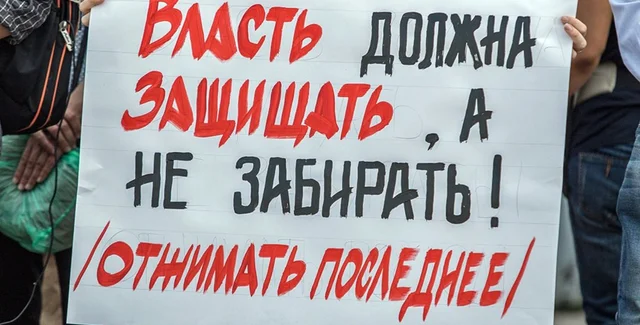 Власть должна
защищать, а
не забирать!
/отжимать последнее/